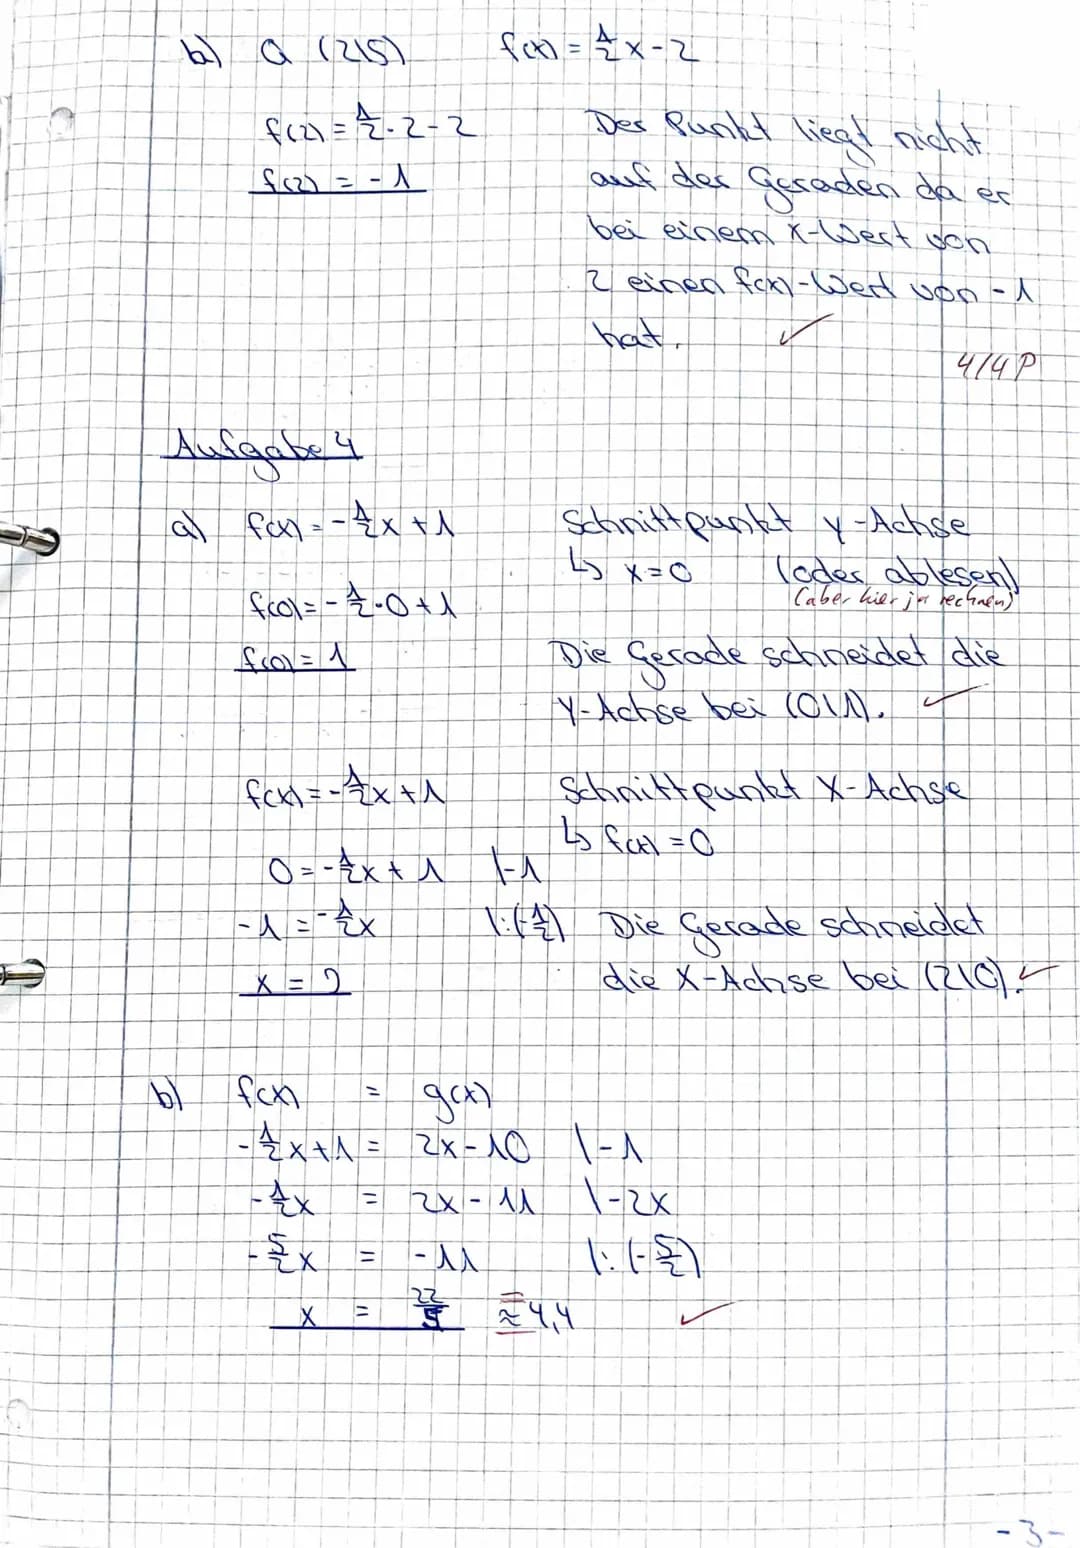 b) Q (2|5) f(x) = 1/2 x - 2
f(2) = 1/2 · 2 - 2
f(2) = - 1
Der Punkt liegt nicht
auf der Geraden da er
bei einem x-Wert von
2 einen f(x)-Wert von - 1
hat. ✓
4/4 P
Aufgabe 4
a) f(x) = - 1/2 x + 1 Schnittpunkt y-Achse
↳ x = 0 (oder ablesen)
(aber hier ja rechnen)
f(0) = - 1/2 · 0 + 1
f(0) = 1
Die Gerade schneidet die
Y-Achse bei (0|1). ✓
f(x) = - 1/2 x + 1 Schnittpunkt X-Achse
↳ f(x) = 0
0 = - 1/2 x + 1 |-1
-1 = - 1/2 x |:(-1/2)
x = 2
Die Gerade schneidet
die X-Achse bei (2|0). ✓
b) f(x) = g(x)
- 1/2 x + 1 = 2x - 10 |-1
- 1/2 x = 2x - 11 |-2x
- 5/2 x = - 11 |:(-5/2)
x = 22/5 ≈ 4,4 ✓
=
- 3 -